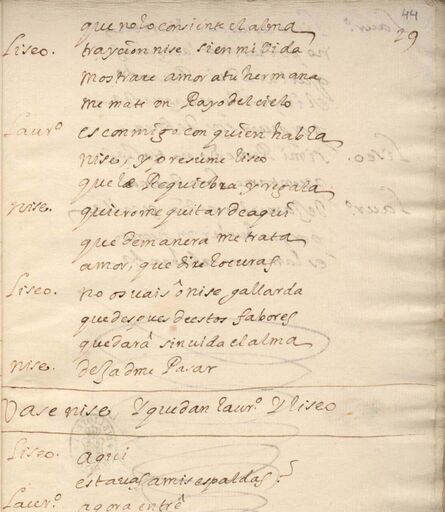 44
29
que no lo consiente el alma
Liseo. trayçion nise si en mi vida
mostrare amor a tu hermana
me mate un Rayo del cielo
Laurº es conmigo con quien habla
nise, y presume liseo
que la Requiebra y regala
nise. quierome quitar de aqui
que de manera me trata
amor, que dire locuras
Liseo. no os vais ô nise gallarda
que despues de estos fabores
quedará sin vida el alma
nise. dexadme Pasar
Vase nise y quedan laurº y liseo
Liseo. aqui
estavas a mis espaldas?
Laurº agora entrê